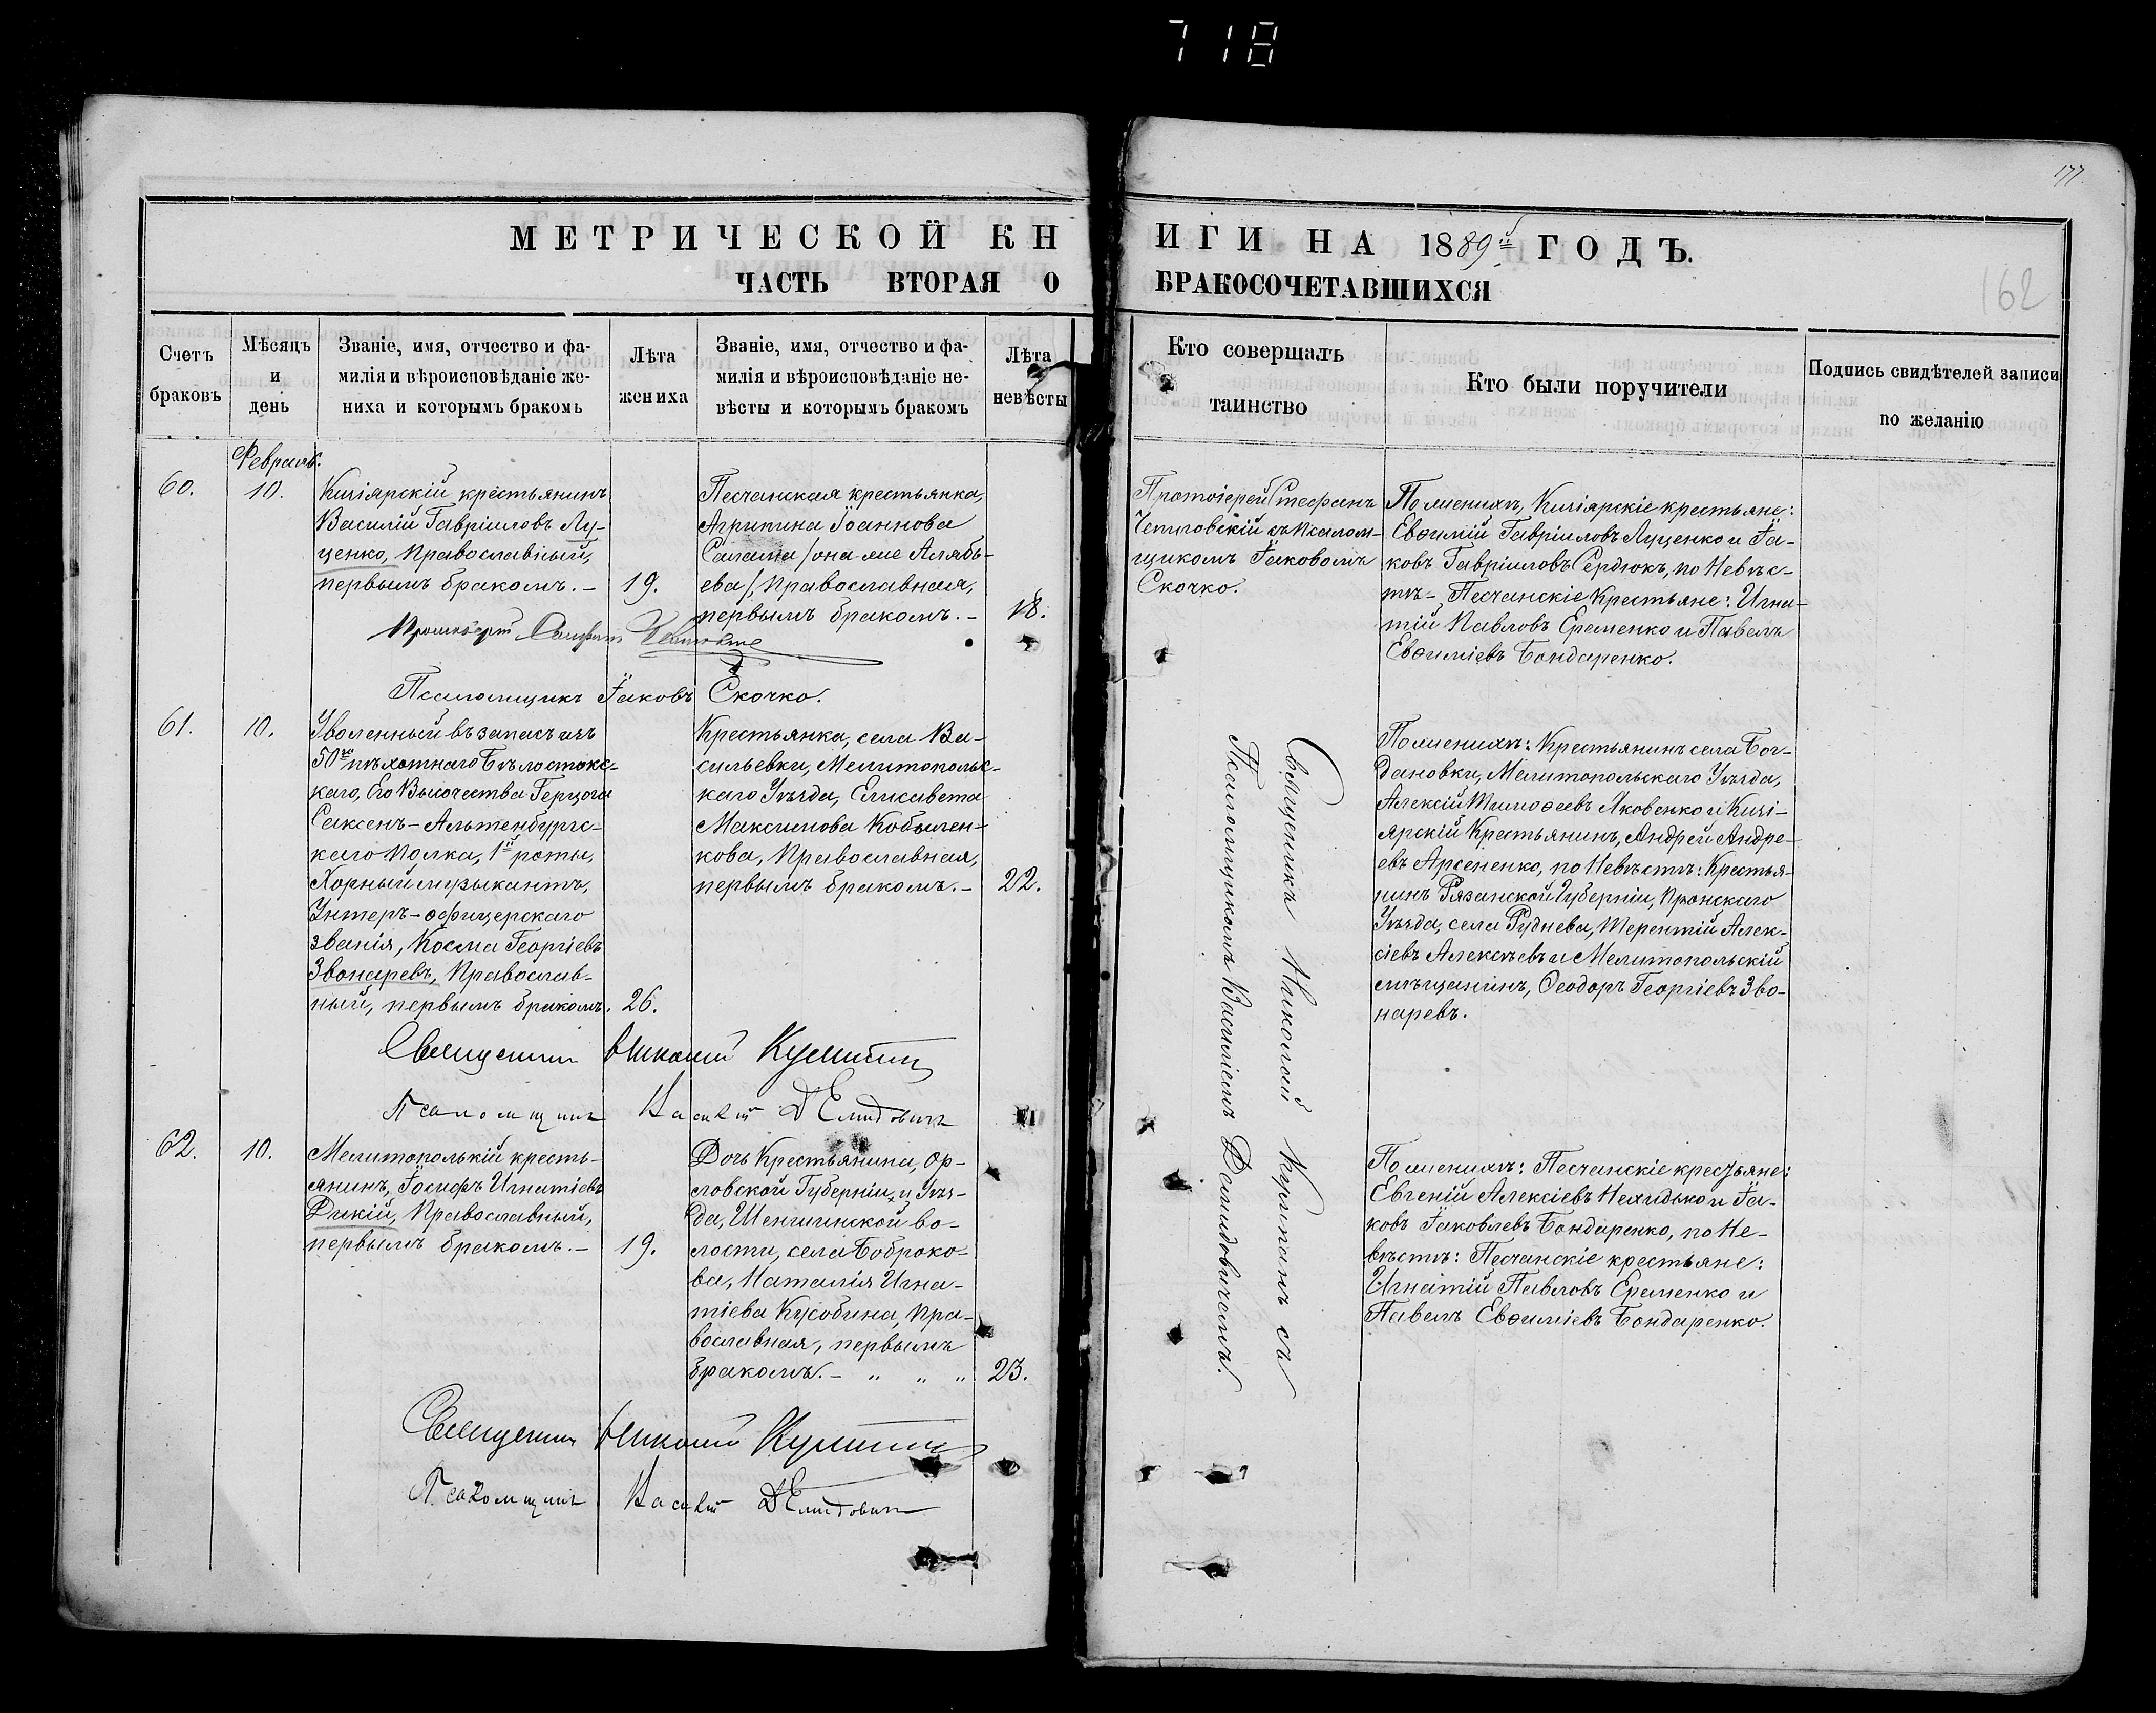 718
177
МЕТРИЧЕСКОЙ КНИГИ НА 1889й ГОДЪ.
ЧАСТЬ ВТОРАЯ О БРАКОСОЧЕТАВШИХСЯ
162
Счетъ браковъ
Мѣсяцъ и день
Званіе, имя, отчество и фа-
милія и вѣроисповѣданіе же-
ниха и которымъ бракомъ
Лѣта жениха
Званіе, имя, отчество и фа-
милія и вѣроисповѣданіе не-
вѣсты и которымъ бракомъ
Лѣта невѣсты
Кто совершалъ
таинство
Кто были поручители
Подпись свидѣтелей записи
по желанію
Февраль.
60.
10.
Кизіярскій крестьянинъ
Василій Гавріиловъ Лу-
ценко, православный,
первымъ бракомъ.–
19.
Песчанская крестьянка,
Агрипина Іоаннова
/она же Алябь-
ева/, православная,
первымъ бракомъ.–
18.
Протоіерей Стефанъ
съ псалом-
щикомъ Іаковомъ
Скочко.
По женихѣ, Кизіярскіе крестьяне:
Евѳимій Гавріиловъ Луценко и Іа-
ковъ Гавріиловъ Сердюкъ, по невѣс-
тѣ – Песчанскіе крестьяне: Игна-
тій Павловъ Еременко и Павелъ
Евѳиміевъ Бондаренко.
Протоіерей Стефанъ
Псаломщикъ Іаковъ Скочко.
61.
10.
Уволенный въ запасъ изъ
50го пѣхотнаго Бѣлостокс-
каго, Его Высочества Герцога
Саксенъ-Альтенбургс-
каго полка, 1й роты,
Хорный музыкантъ,
Унтеръ-офицерскаго
званія, Косма Георгіевъ
Звонаревъ, православ-
ный, первымъ бракомъ.
26.
Крестьянка, села Ва-
сильевки, Мелитопольс-
каго Уѣзда, Елисавета
Максимова Кобылен-
кова, православная,
первымъ бракомъ.–
22.
Священникъ Николай
Псаломщикъ Василій Демидовичъ
Священникъ Николай съ
Псаломщикомъ Василіемъ Демидовичемъ.
По женихѣ: Крестьянинъ села Бог-
дановки, Мелитопольскаго Уѣзда,
Алексій Тимоѳеевъ Яковенко и Кизі-
ярскій крестьянинъ, Андрей Андре-
евъ Арсененко, по невѣстѣ: Крестья-
нинъ Рязанской Губерніи, Пронскаго
Уѣзда, села Руднева, Терентій Алек-
сіевъ Алексѣевъ и Мелитопольскій
мѣщанинъ, Ѳеодоръ Георгіевъ Зво-
наревъ.
62.
10.
Мелитополькій кресть-
янинъ, Іосифъ Игнатіевъ
Дикій, православный,
первымъ бракомъ.–
19.
Дочь крестьянина, Ор-
ловской Губерніи, и Уѣз-
да, Шеншинской во-
лости, села Боброко-
ва, Наталія Игна-
тіева Кузобина, пра-
вославная, первымъ
бракомъ.– „ „ „
23.
По женихѣ: Песчанскіе крестьяне:
Евгеній Алексіевъ Нехидько и Іа-
ковъ Іаковлевъ Бондаренко, по не-
вѣстѣ: Песчанскіе крестьяне:
Игнатій Павловъ Еременко и
Павелъ Евѳиміевъ Бондаренко.
Священникъ Николай
Псаломщикъ Василій Демидовичъ